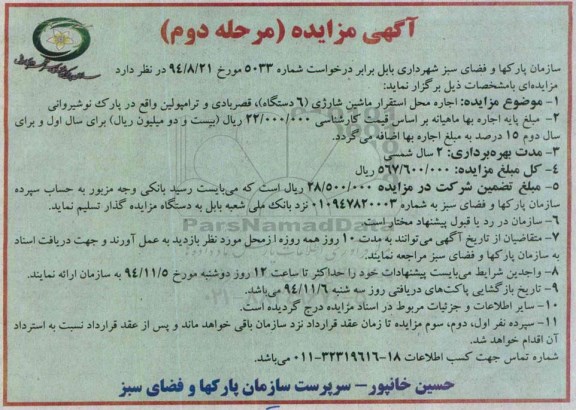 آگهی مزایده (مرحله دوم)
سازمان پارکها و فضای سبز شهرداری بابل برابر درخواست شماره ۵۰۳۳ مورخ ۹۴/۸/۲۱ در نظر دارد
مزایده‌ای بامشخصات ذیل برگزار نماید:
۱- موضوع مزایده: اجاره محل استقرار ماشین شارژی (۶ دستگاه)، قصربادی و ترامپولین واقع در پارک نوشیروانی
۲- مبلغ پایه اجاره بها ماهیانه بر اساس قیمت کارشناسی ۲۲/۰۰۰/۰۰۰ ریال (بیست و دو میلیون ریال) برای سال اول و برای
سال دوم ۱۵ درصد به مبلغ اجاره بها اضافه می‌گردد.
۳- مدت بهره‌برداری: ۲ سال شمسی
۴- کل مبلغ مزایده: ۵۶۷/۶۰۰/۰۰۰ ریال
۵- مبلغ تضمین شرکت در مزایده ۲۸/۵۰۰/۰۰۰ ریال است که می‌بایست رسید بانکی وجه مزبور به حساب سپرده
سازمان پارکها و فضای سبز به شماره ۰۱۰۹۴۷۸۲۰۰۰۳ نزد بانک ملی شعبه بابل به دستگاه مزایده گذار تسلیم نماید.
۶- سازمان در رد یا قبول پیشنهاد مختار است.
ParsNamadData
۷- متقاضیان از تاریخ آگهی می‌توانند به مدت ۱۰ روز همه روزه ازمحل مورد نظر بازدید به عمل آورند و جهت دریافت اسناد
به سازمان پارکها و فضای سبز مراجعه نمایند.
۸- واجدین شرایط می‌بایست پیشنهادات خود را حداکثر تا ساعت ۱۲ روز دوشنبه مورخ ۹۴/۱۱/۵ به سازمان ارائه نمایند.
۹- تاریخ بازگشایی پاکت‌های دریافتی روز سه شنبه ۹۴/۱۱/۶ می‌باشد.
۱۰- سایر اطلاعات و جزئیات مربوط در اسناد مزایده درج گردیده است.
۱۱- سپرده نفر اول، دوم، سوم مزایده تا زمان عقد قرارداد نزد سازمان باقی خواهد ماند و پس از عقد قرارداد نسبت به استرداد
آن اقدام خواهد شد.
شماره تماس جهت کسب اطلاعات ۱۸-۳۲۳۱۹۶۱۶-۰۱۱ می‌باشد.
حسین خانپور- سرپرست سازمان پارکها و فضای سبز